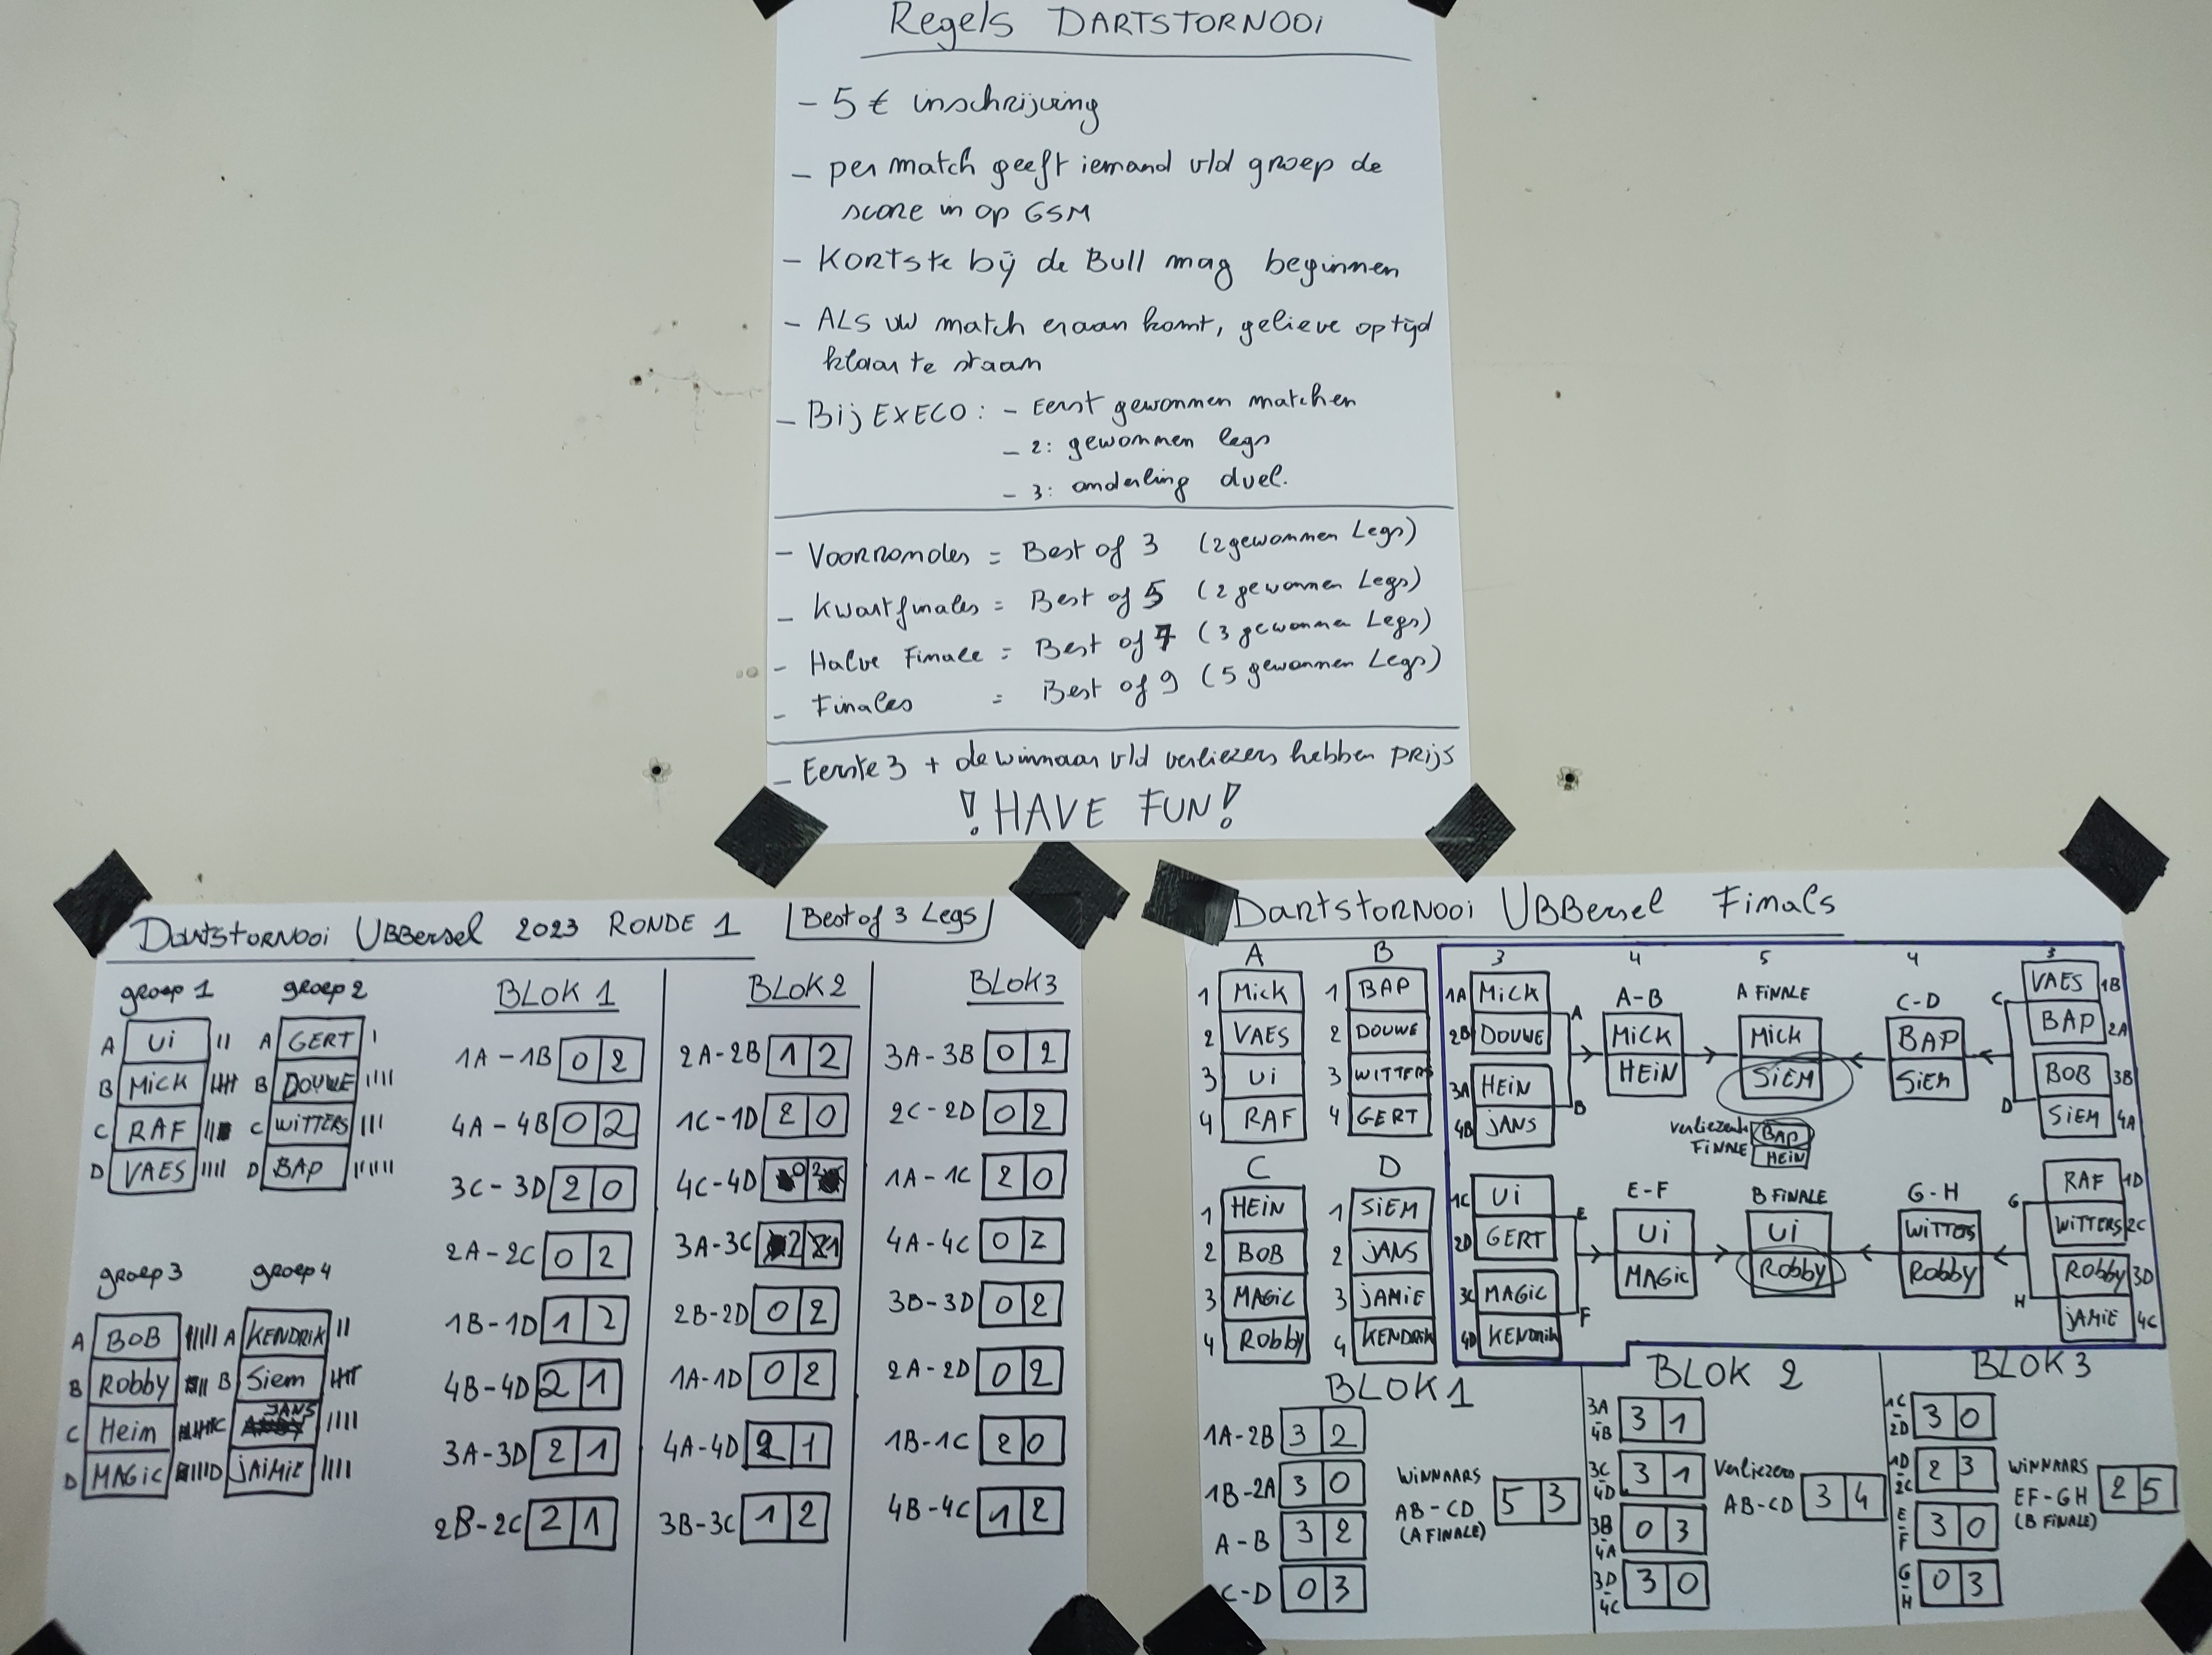 Regels DARTSTORNOOi
- 5 € inschrijving
- per match geeft iemand v/d groep de
score in op GSM
- Kortste bij de Bull mag beginnen
- ALS uw match eraan komt, gelieve op tijd
klaar te staan
- Bij EXECO: - Eerst gewonnen matchen
- 2: gewonnen legs
- 3: onderling duel.
- Voorrondes = Best of 3 (2 gewonnen Legs)
- Kwartfinales = Best of 5 (2 gewonnen Legs)
- Halve Finale = Best of 7 (3 gewonnen Legs)
- Finales = Best of 9 (5 gewonnen Legs)
- Eerste 3 + de winnaar v/d verliezers hebben PRijs
! HAVE FUN!
DartstorNooi UBBersel 2023 RONDE 1 Best of 3 Legs
groep 1
A Ui II
B MiCK IIIII
C RAF II
D VAES IIII
groep 2
A GERT I
B DOUWE IIII
C WiTTERS III
D BAP IIIIII
groep 3
A BOB IIIII
B Robby II
C Heim
D MAGiC IIII
groep 4
A KENDRIK II
B Siem IIIII
C JANS IIII
D jAiMiE IIII
BLOK 1
1A - 1B 0 2
4A - 4B 0 2
3C - 3D 2 0
2A - 2C 0 2
1B - 1D 1 2
4B - 4D 2 1
3A - 3D 2 1
2B - 2C 2 1
BLOK 2
2A - 2B 1 2
1C - 1D 2 0
4C - 4D 0 2
3A - 3C 2 1
2B - 2D 0 2
1A - 1D 0 2
4A - 4D 2 1
3B - 3C 1 2
BLOK 3
3A - 3B 0 2
2C - 2D 0 2
1A - 1C 2 0
4A - 4C 0 2
3B - 3D 0 2
2A - 2D 0 2
1B - 1C 2 0
4B - 4C 1 2
DartstorNooi UBBersel Finals
A
1 Mick
2 VAES
3 Ui
4 RAF
B
1 BAP
2 DOUWE
3 WITTERS
4 GERT
C
1 HEiN
2 BOB
3 MAGiC
4 Robby
D
1 SiEM
2 jANS
3 jAMiE
4 KENDRiK
3 4 5 4 3
1A MiCK
2B DOUWE
A
3A HEiN
4B jANS
B
A-B
MiCK
HEiN
A FiNALE
MiCK
SiEM
verliezers BAP
FiNALE HEiN
C-D
BAP
SiEM
C
VAES 1B
BAP 2A
D
BOB 3B
SiEM 4A
1C Ui
2D GERT
E
3C MAGiC
4D KENDRiK
F
E-F
Ui
MAGiC
B FiNALE
Ui
Robby
G-H
WiTTERS
Robby
G
RAF 1D
WiTTERS 2C
H
Robby 3D
jAMiE 4C
BLOK 1
1A - 2B 3 2
1B - 2A 3 0
A - B 3 2
C - D 0 3
WiNNAARS
AB - CD
(A FINALE)
5 3
BLOK 2
3A - 4B 3 1
3C - 4D 3 1
3B - 4A 0 3
3D - 4C 3 0
Verliezers
AB - CD
3 4
BLOK 3
1C - 2D 3 0
1D - 2C 2 3
E - F 3 0
G - H 0 3
WiNNAARS
EF - GH
(B FiNALE)
2 5